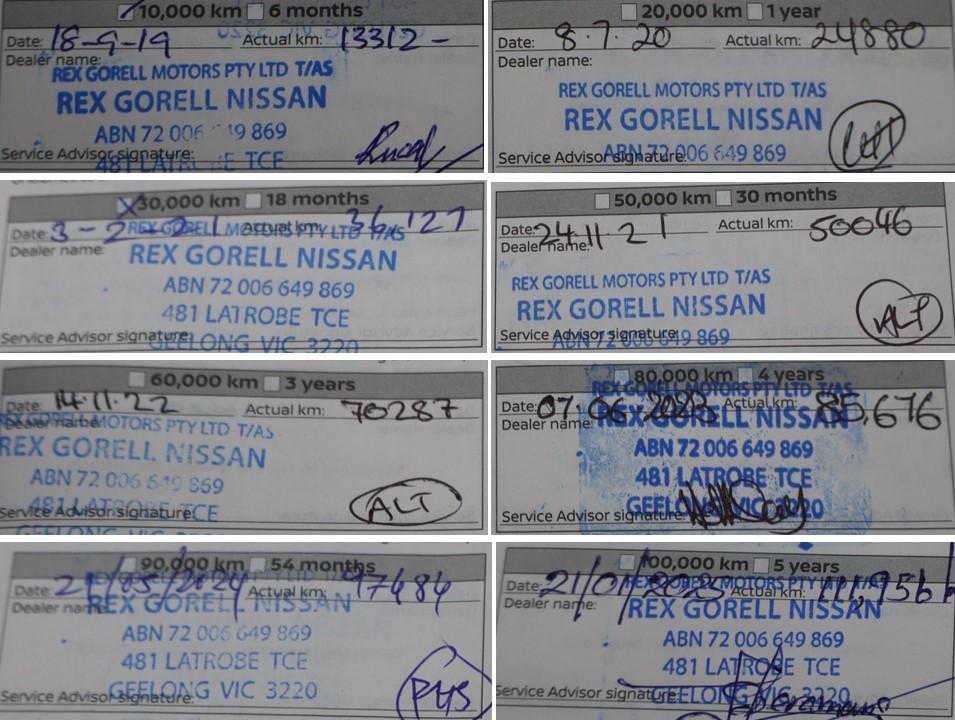 10,000 km 6 months
Date: 18-9-19 Actual km: 13312 -
Dealer name:
REX GORELL MOTORS PTY LTD T/AS
REX GORELL NISSAN
ABN 72 006 19 869
Service Advisor signature:
481 LATR E TCE
20,000 km 1 year
Date: 8.7.20 Actual km: 24880
Dealer name:
REX GORELL MOTORS PTY LTD T/AS
REX GORELL NISSAN
ABN 72 006 649 869
Service Advisor signature:
30,000 km 18 months
Date: 3-2-21 Actual km: 36,127
REX GORELL MOTORS PTY LTD T/AS
Dealer name:
REX GORELL NISSAN
ABN 72 006 649 869
481 LATROBE TCE
Service Advisor signature:
GEELONG VIC 3220
50,000 km 30 months
Date: 24.11.21 Actual km: 50046
Dealer name:
REX GORELL MOTORS PTY LTD T/AS
REX GORELL NISSAN
Service Advisor signature:
ABN 72 006 649 869
ALT
60,000 km 3 years
Date: 14.11.22 Actual km: 70287
Dealer name:
REX GORELL MOTORS PTY LTD T/AS
REX GORELL NISSAN
ABN 72 006 649 869
481 LATROBE TCE
Service Advisor signature:
ALT
GEELONG VIC 3220
80,000 km 4 years
REX GORELL MOTORS PTY LTD T/AS
Date: 07.06.2023 Actual km: 85,676
Dealer name:
REX GORELL NISSAN
ABN 72 006 649 869
481 LATROBE TCE
GEELONG VIC 3220
Service Advisor signature:
90,000 km 54 months
Date: /05/2024 Actual km: 97484
Dealer name:
REX GORELL NISSAN
ABN 72 006 649 869
481 LATROBE TCE
GEELONG VIC 3220
Service Advisor signature:
100,000 km 5 years
REX GORELL MOTORS PTY LTD T/AS
Date: 21/01/2025 Actual km: 111,956
Dealer name:
REX GORELL NISSAN
ABN 72 006 649 869
481 LATROBE TCE
Service Advisor signature:
GEELONG VIC 3220